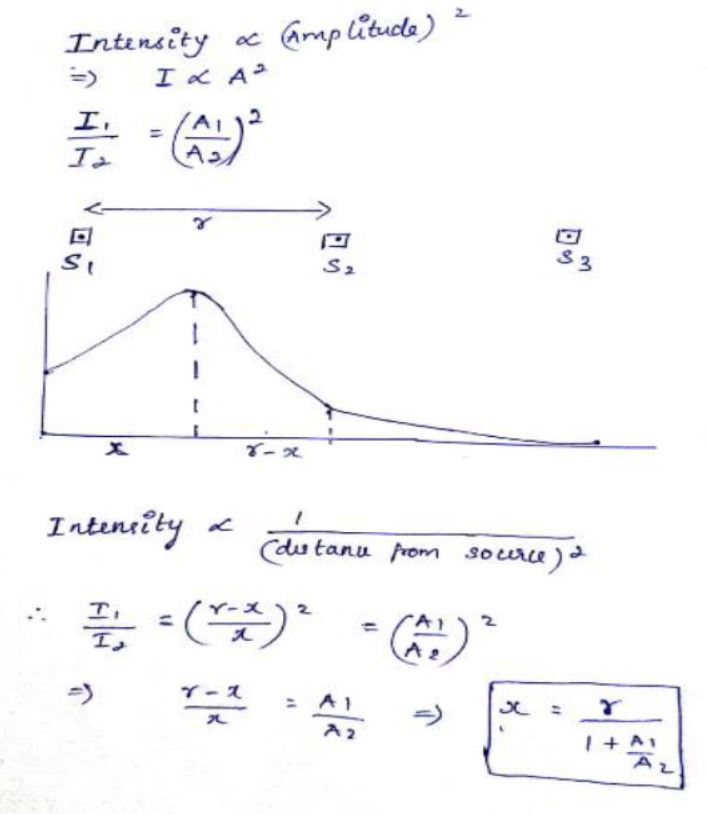 Intensity ∝ (Amplitude)²
⇒ I ∝ A²
I₁/I₂ = (A₁/A₂)²
r
S₁ S₂ S₃
x r-x
Intensity ∝ 1/(distance from source)²
∴ I₁/I₂ = ((r-x)/x)² = (A₁/A₂)²
⇒ (r-x)/x = A₁/A₂ ⇒ x = r/(1 + A₁/A₂)